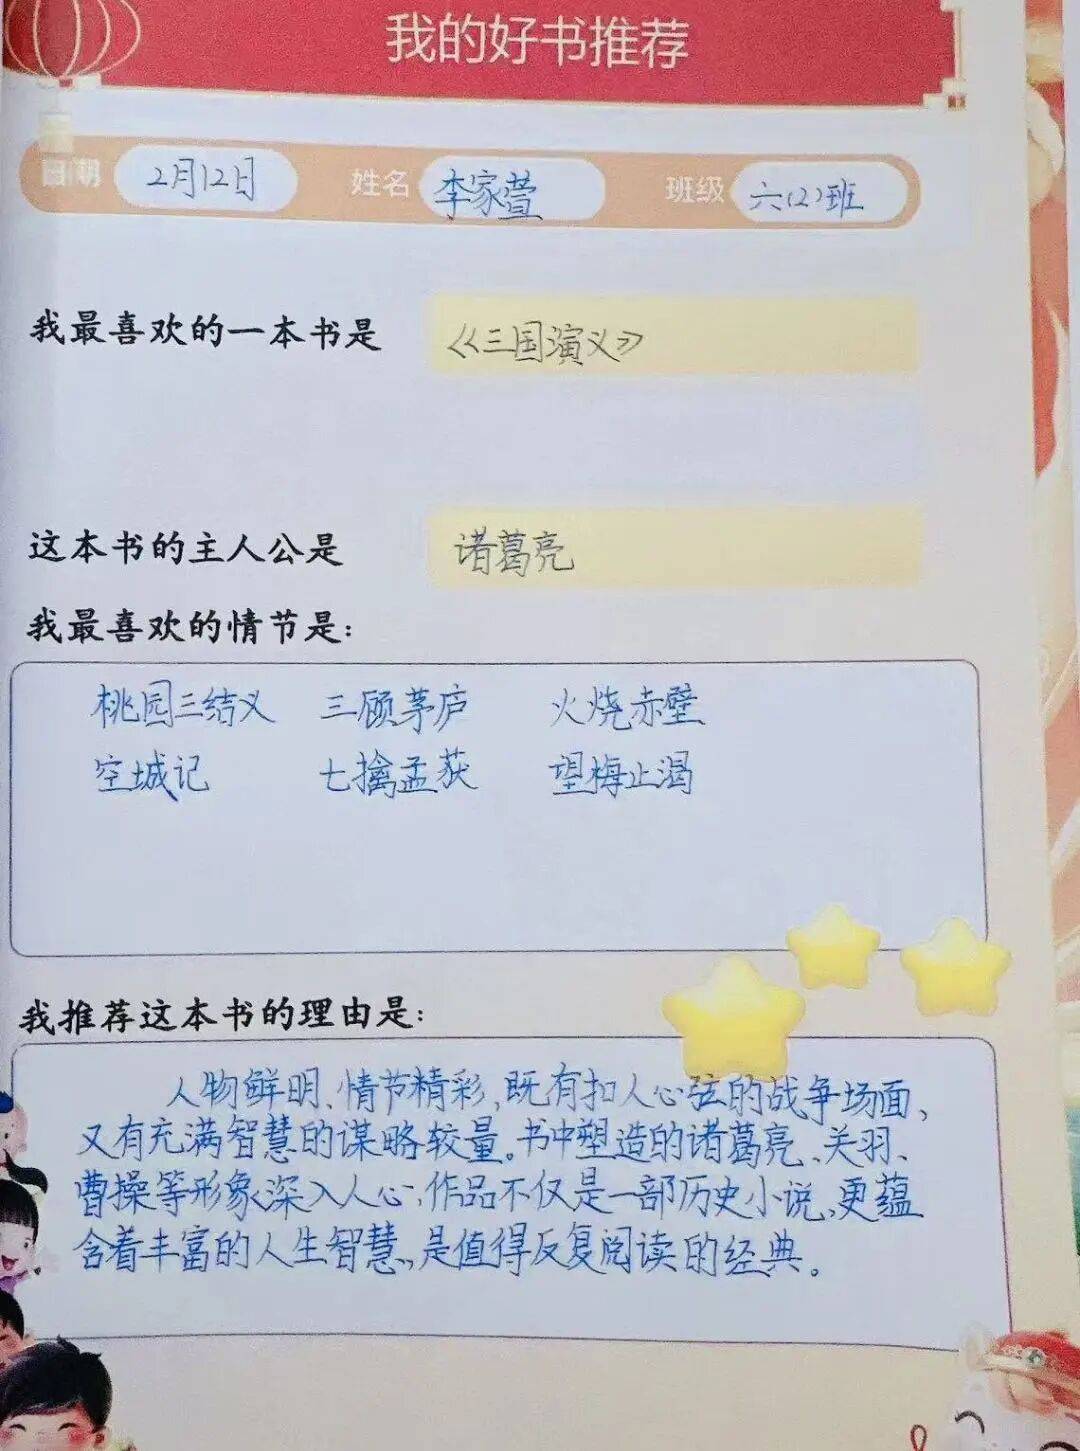 我的好书推荐
日期 2月12日 姓名 李家萱 班级 六(2)班
我最喜欢的一本书是 《三国演义》
这本书的主人公是 诸葛亮
我最喜欢的情节是:
桃园三结义 三顾茅庐 火烧赤壁
空城记 七擒孟获 望梅止渴
我推荐这本书的理由是:
人物鲜明、情节精彩,既有扣人心弦的战争场面、
又有充满智慧的谋略较量。书中塑造的诸葛亮、关羽、
曹操等形象深入人心,作品不仅是一部历史小说,更蕴
含着丰富的人生智慧,是值得反复阅读的经典。